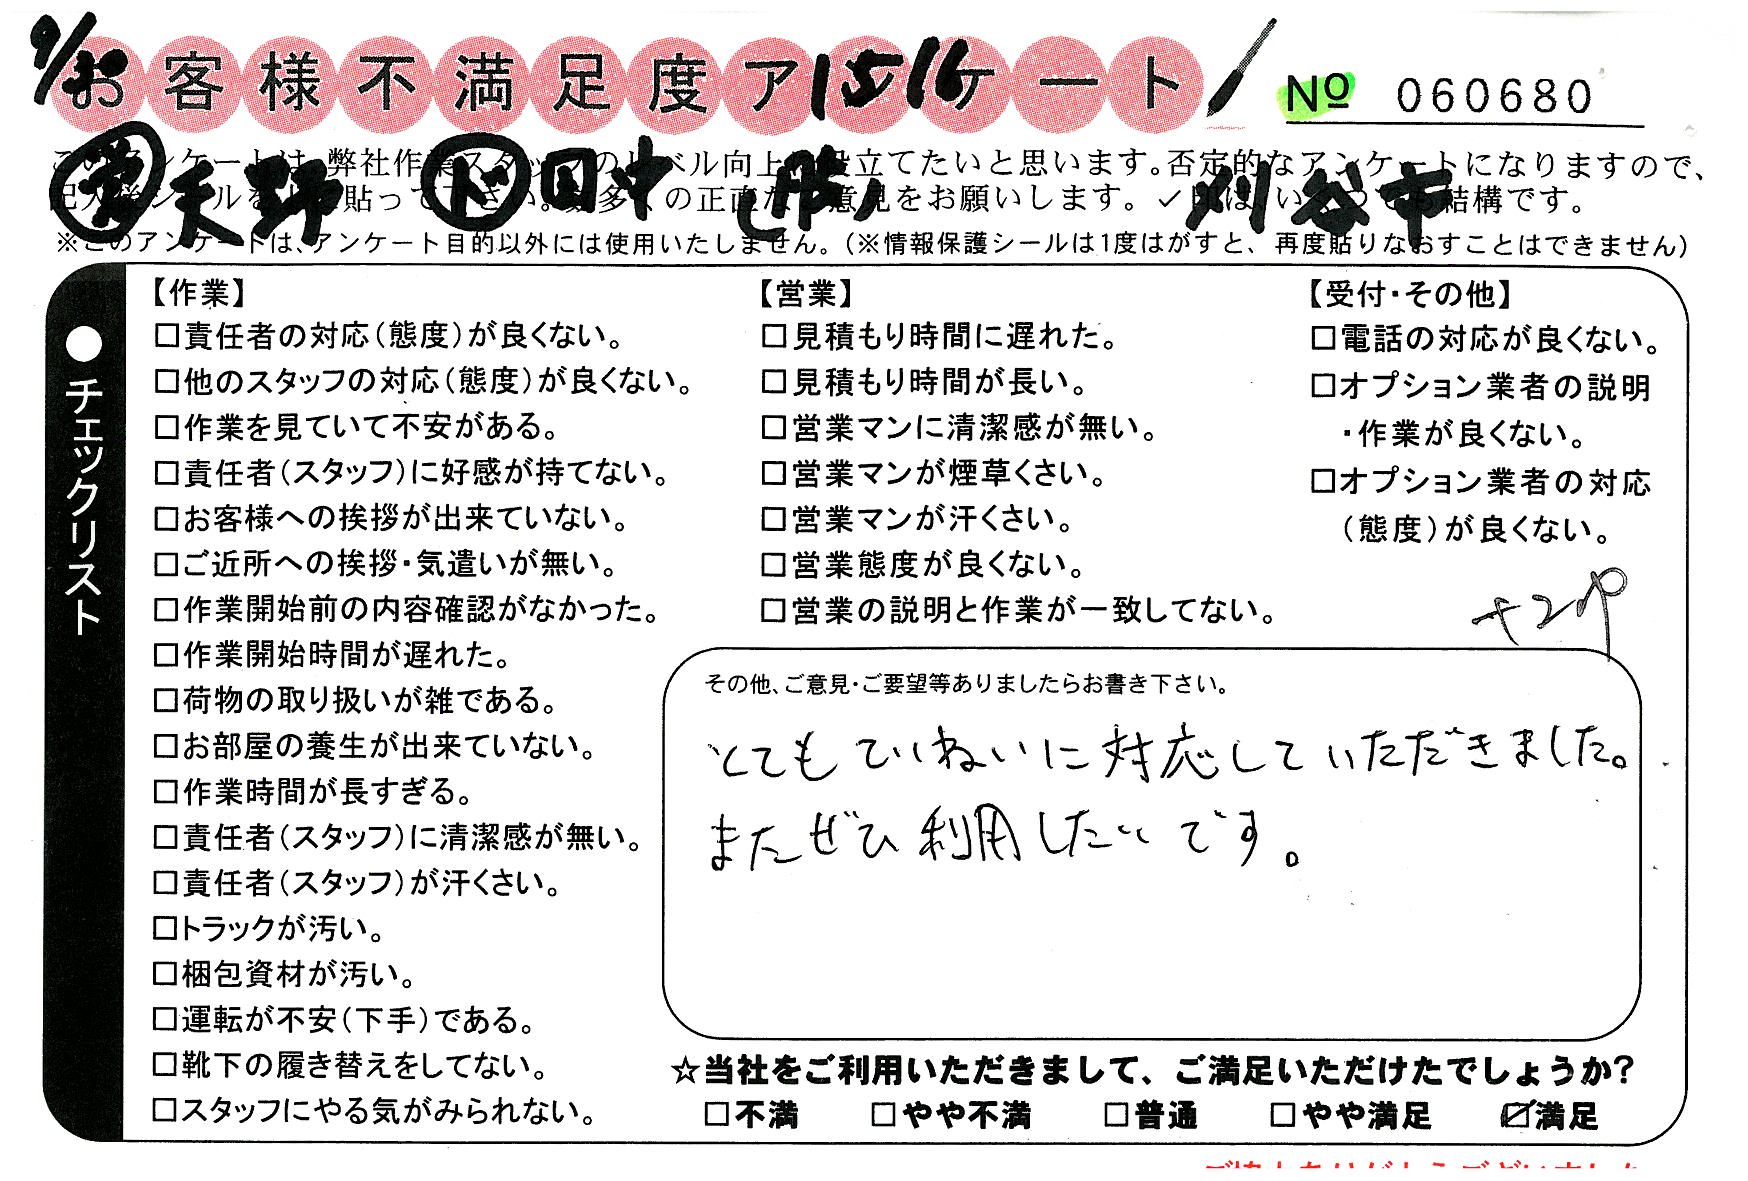 お客様不満足度アンケート
№ 060680
このアンケートは、弊社作業スタッフのレベル向上に役立てたいと思います。否定的なアンケートになりますので、
天野 田中 刈谷市
※このアンケートは、アンケート目的以外には使用いたしません。(※情報保護シールは1度はがすと、再度貼りなおすことはできません)
●チェックリスト
【作業】
□責任者の対応(態度)が良くない。
□他のスタッフの対応(態度)が良くない。
□作業を見ていて不安がある。
□責任者(スタッフ)に好感が持てない。
□お客様への挨拶が出来ていない。
□ご近所への挨拶・気遣いが無い。
□作業開始前の内容確認がなかった。
□作業開始時間が遅れた。
□荷物の取り扱いが雑である。
□お部屋の養生が出来ていない。
□作業時間が長すぎる。
□責任者(スタッフ)に清潔感が無い。
□責任者(スタッフ)が汗くさい。
□トラックが汚い。
□梱包資材が汚い。
□運転が不安(下手)である。
□靴下の履き替えをしてない。
□スタッフにやる気がみられない。
【営業】
□見積もり時間に遅れた。
□見積もり時間が長い。
□営業マンに清潔感が無い。
□営業マンが煙草くさい。
□営業マンが汗くさい。
□営業態度が良くない。
□営業の説明と作業が一致してない。
【受付・その他】
□電話の対応が良くない。
□オプション業者の説明
・作業が良くない。
□オプション業者の対応
(態度)が良くない。
+2P
その他、ご意見・ご要望等ありましたらお書き下さい。
とてもていねいに対応していただきました。
またぜひ利用したいです。
☆当社をご利用いただきまして、ご満足いただけたでしょうか?
□不満 □やや不満 □普通 □やや満足 ☑満足